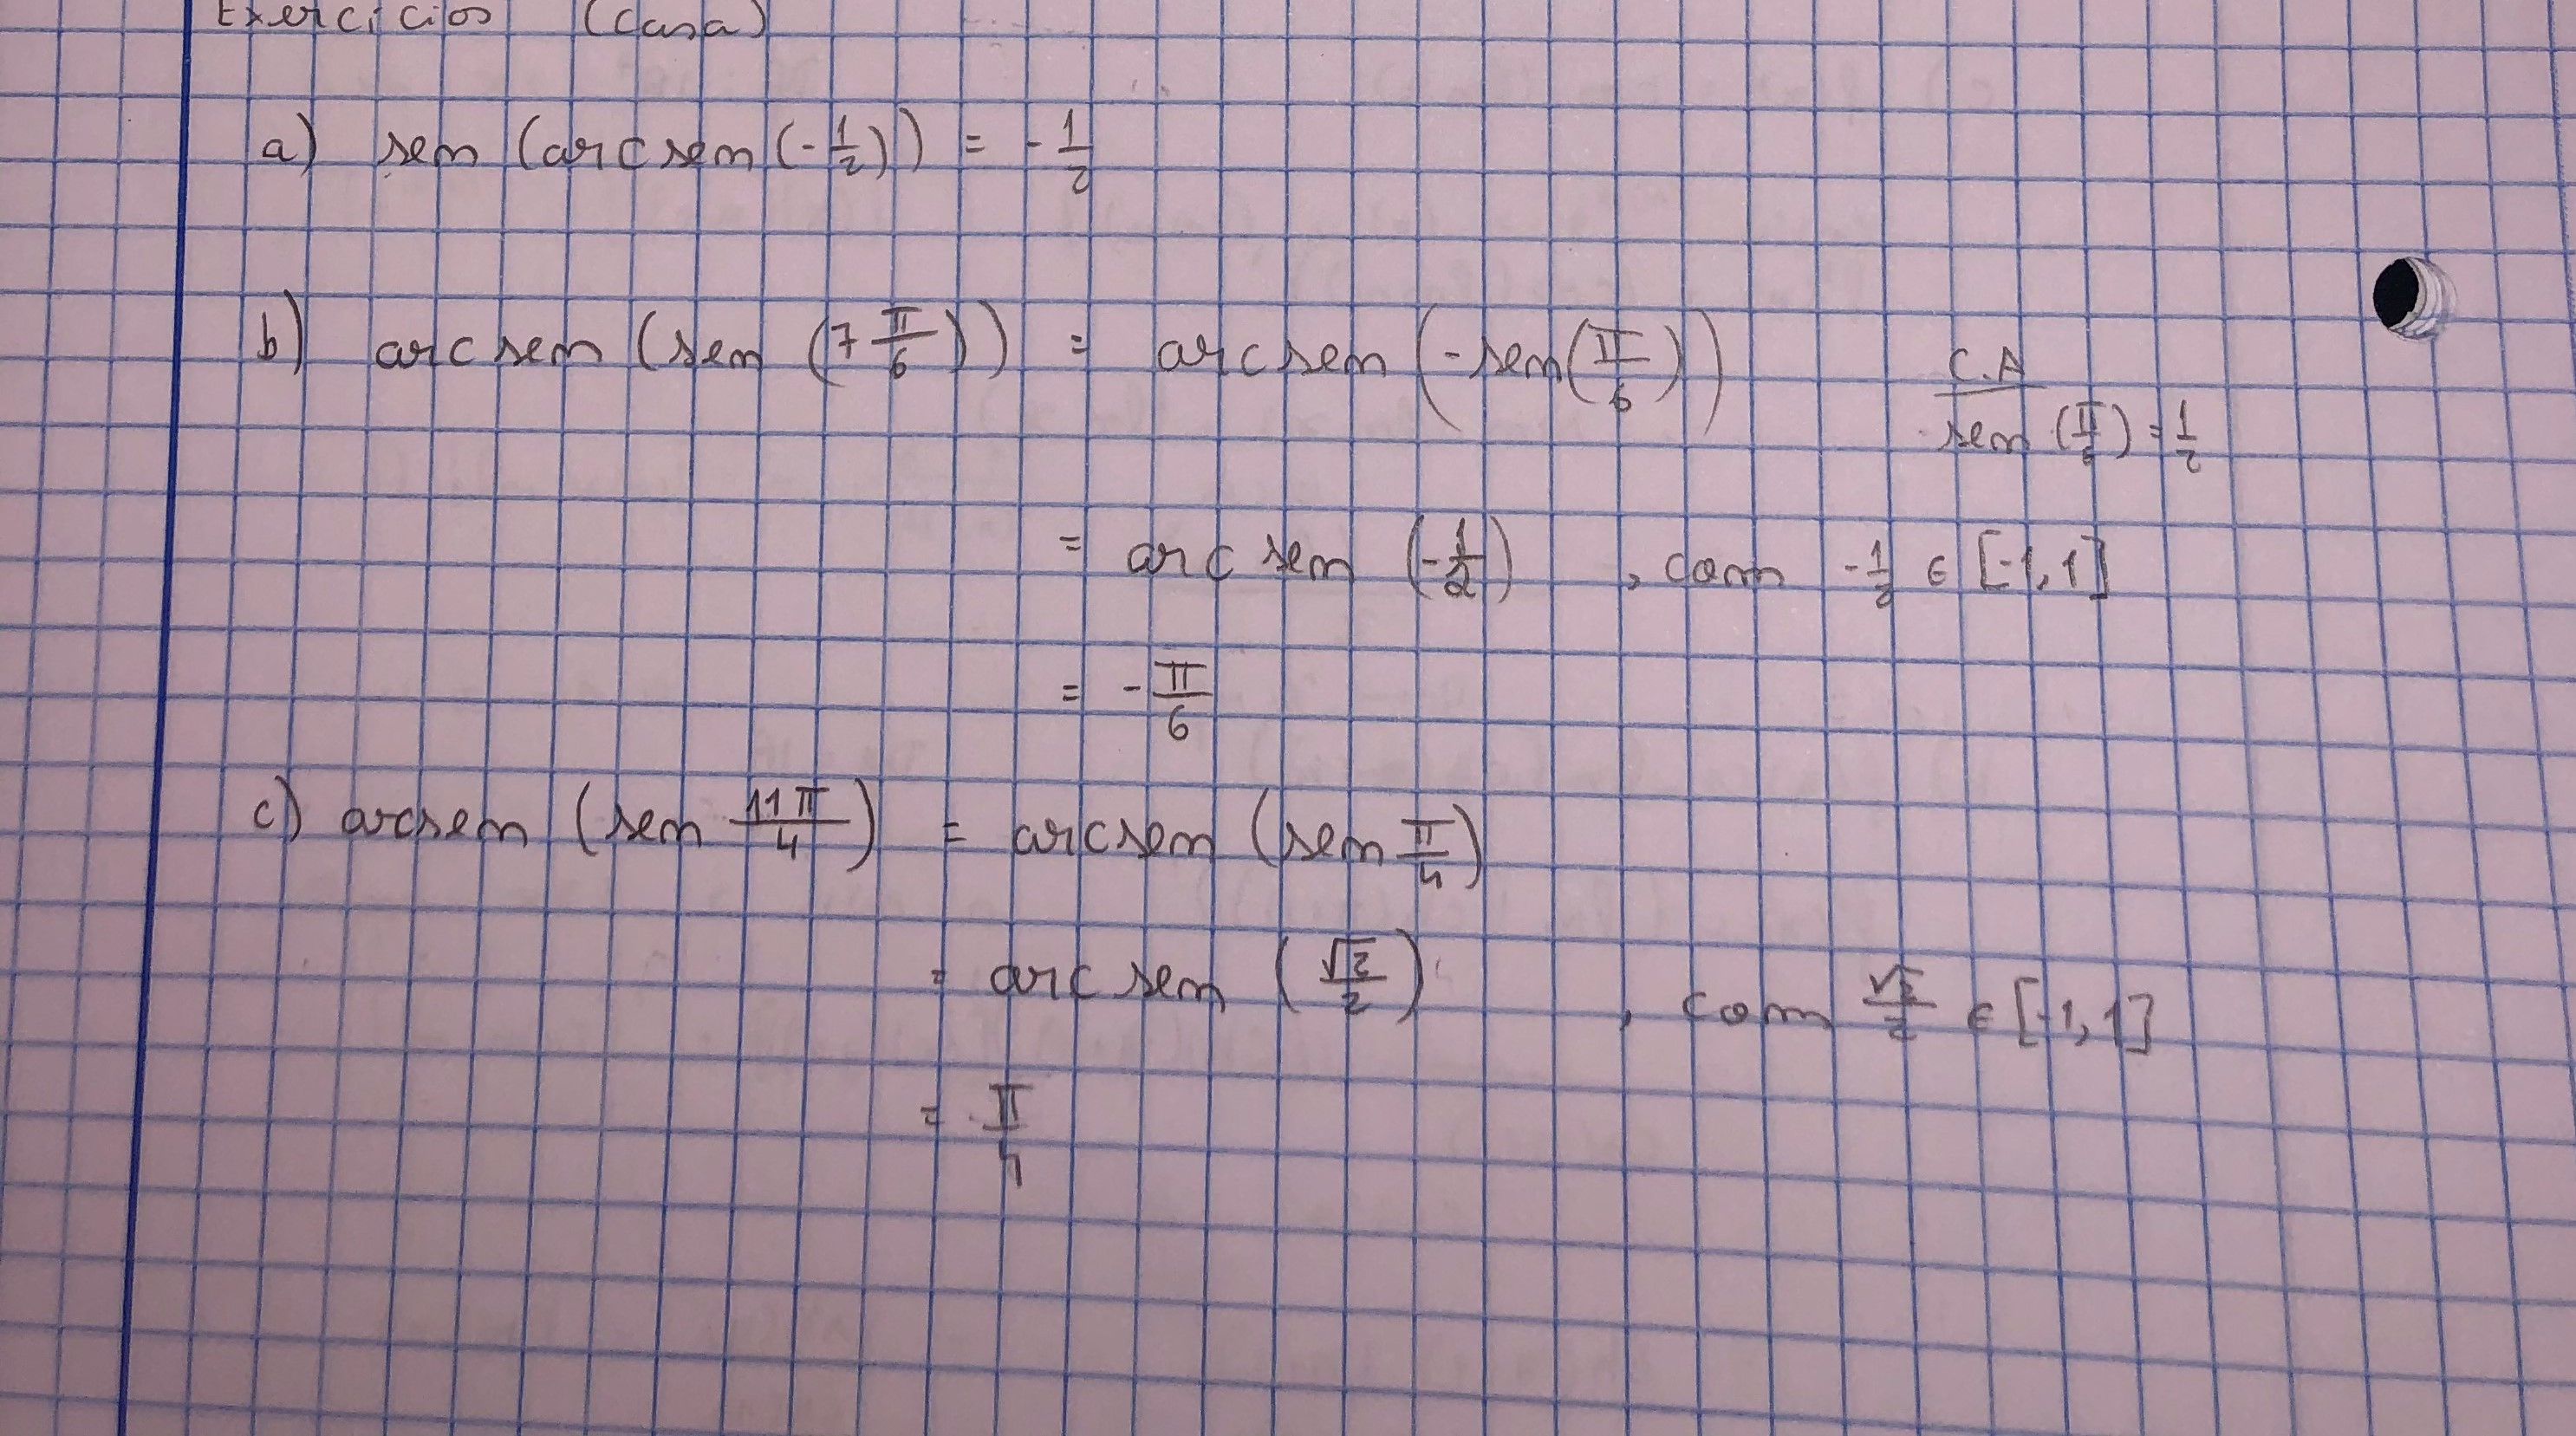 Exercícios (casa)
a) sen (arcsen (-1/2)) = -1/2
b) arcsen (sen (7 π/6)) = arcsen (-sen(π/6))
C.A
sen (π/6) = 1/2
= arcsen (-1/2) , com -1/2 ∈ [-1, 1]
= -π/6
c) arcsen (sen 11π/4) = arcsen (sen π/4)
= arcsen (√2/2) , com √2/2 ∈ [-1, 1]
= π/4